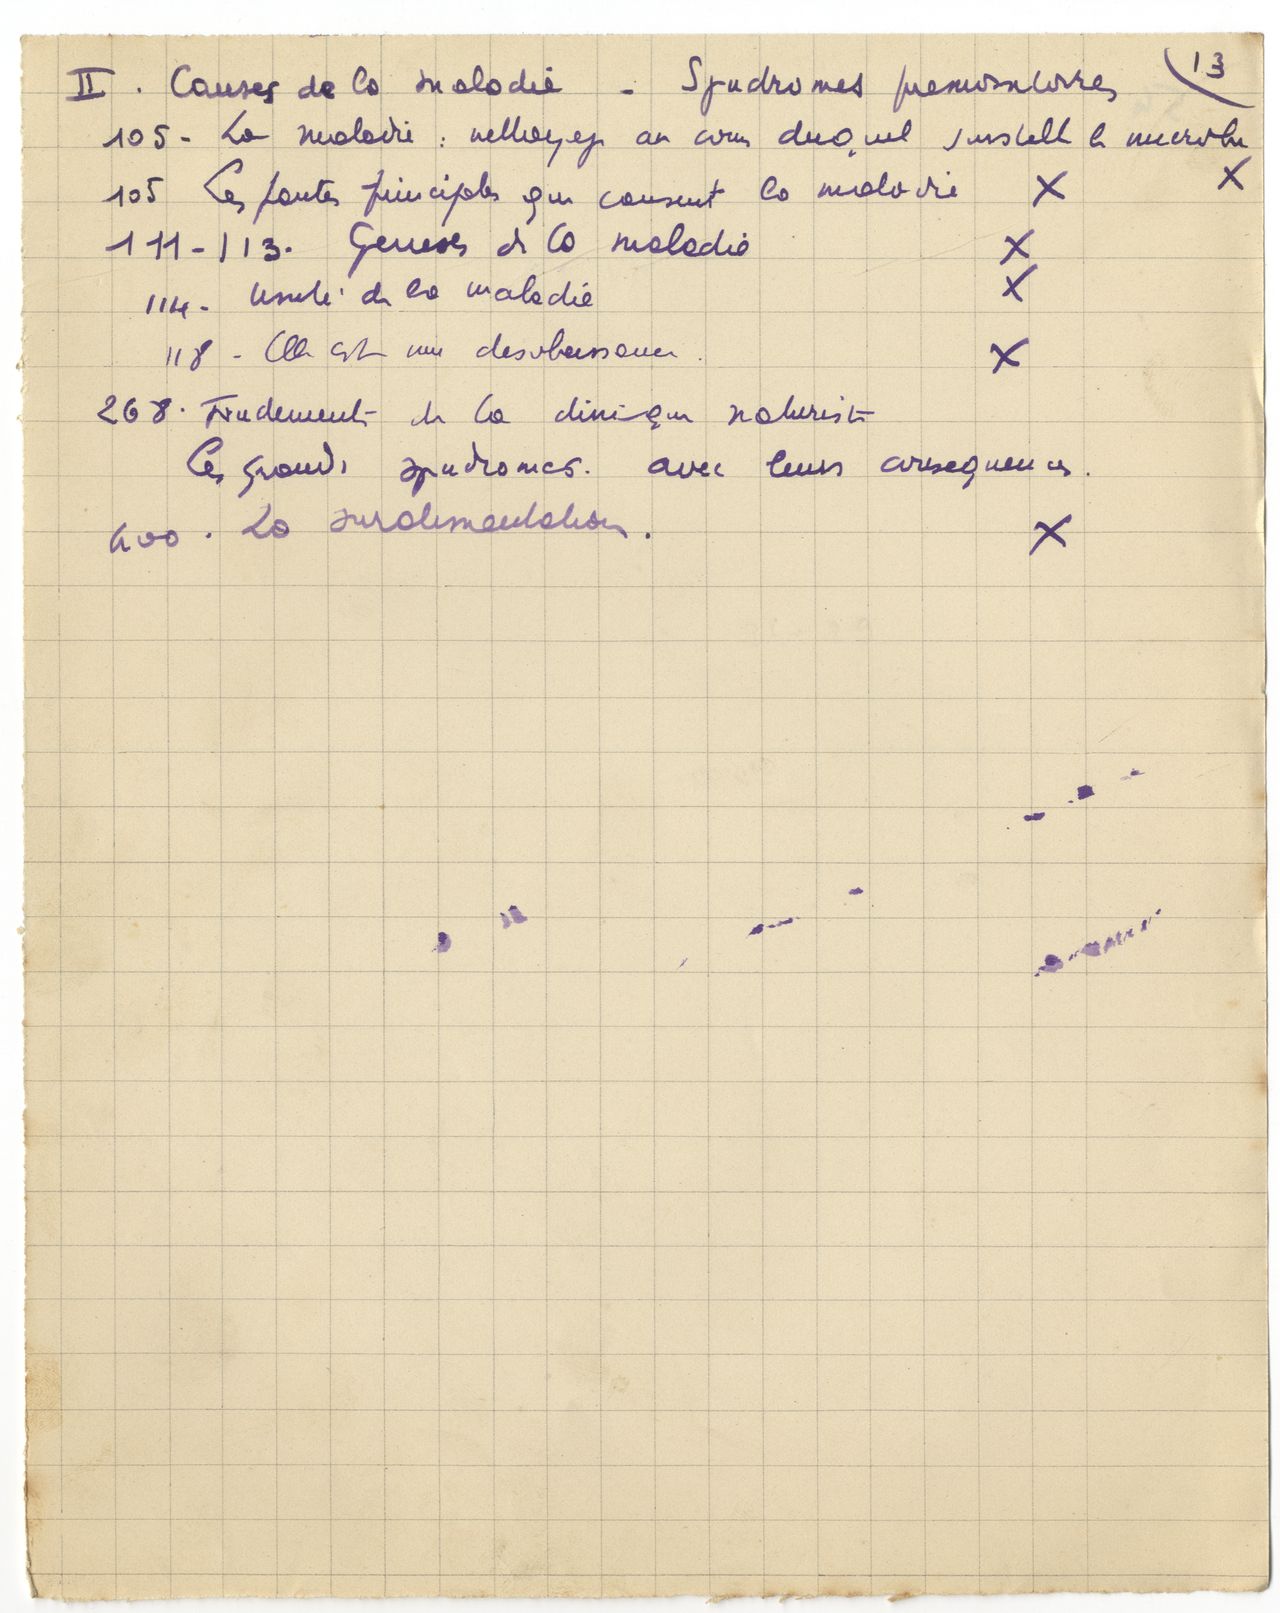 13
II. Causes de la maladie - Syndromes premonitoires
105 - La maladie : nettoyage au cours duquel s'installe le microbe X
105 Les fautes principales qui causent la maladie X
111-113. Geneses de la maladie X
114 - Unité de la maladie X
118 - Elle est une desobeissance. X
268. Fondements de la clinique naturiste
Les grands syndromes. avec leurs consequences.
400. La suralimentation. X